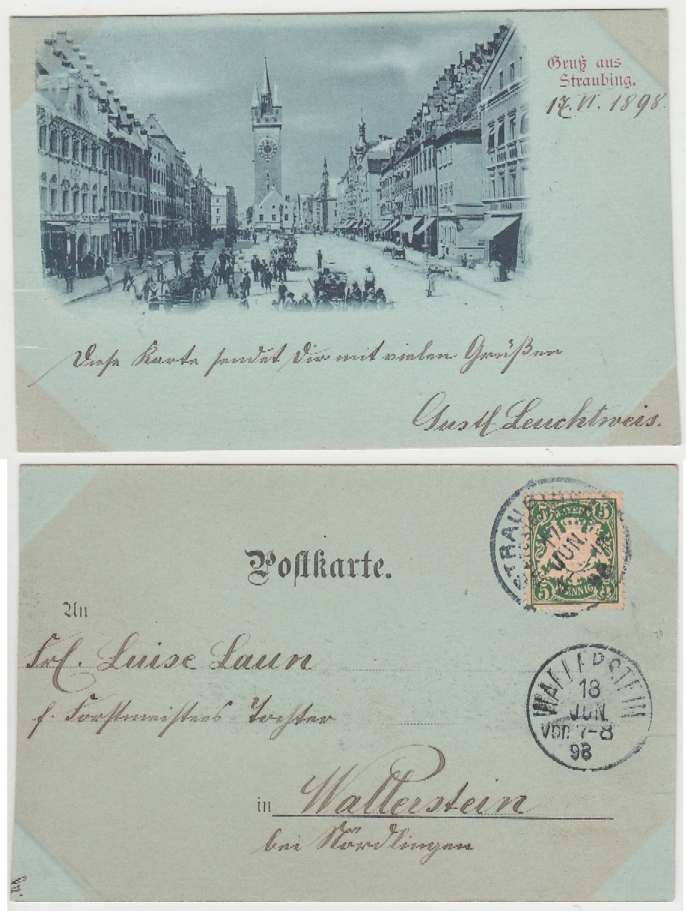 Gruß aus
Straubing.
17. VI. 1898.
Diese Karte sendet Dir mit vielen Grüßen
Gustl Leuchtweis.
Postkarte.
STRAUBING
17
JUN.
98
5 5
BAYERN
5 PFENNIG 5
An
Frl. Luise Laun
f. Forstmeisters Tochter
in Wallerstein
bei Nördlingen
WALLERSTEIN
18
JUN.
Vor. 7-8
98